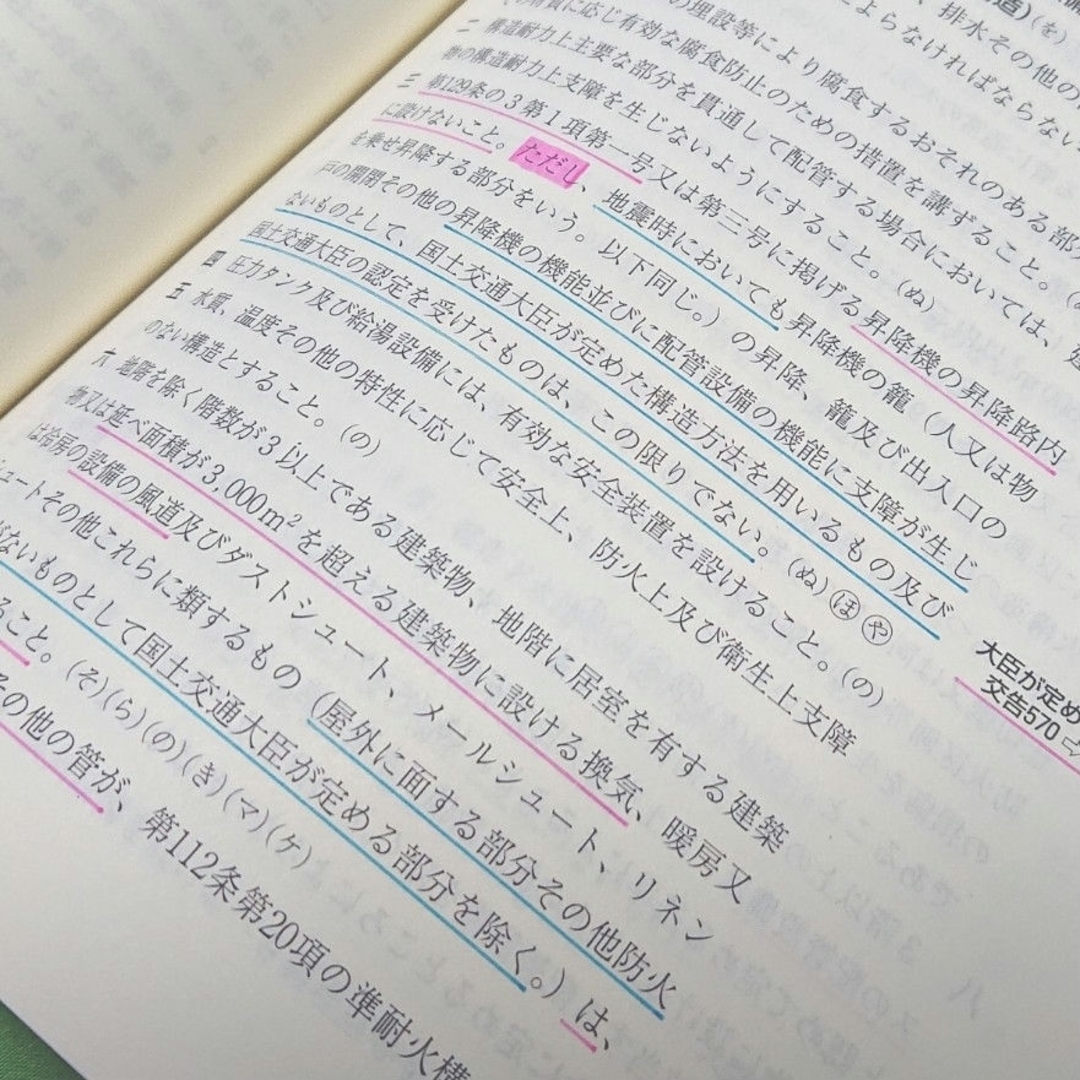 造)(を)
、排水その他の
よらなければならない
の埋設等により腐食するおそれのある部
の材質に応じ有効な腐食防止のための措置を講ずること。
二 構造耐力上主要な部分を貫通して配管する場合においては、建
物の構造耐力上支障を生じないようにすること。(ぬ)
三 第129条の3第1項第一号又は第三号に掲げる昇降機の昇降路内
に設けないこと。ただし、地震時においても昇降機の籠(人又は物
を乗せ昇降する部分をいう。以下同じ。)の昇降、籠及び出入口の
戸の開閉その他の昇降機の機能並びに配管設備の機能に支障が生じ
ないものとして、国土交通大臣が定めた構造方法を用いるもの及び
国土交通大臣の認定を受けたものは、この限りでない。(ぬ)ほや
四 圧力タンク及び給湯設備には、有効な安全装置を設けること。(の)
五 水質、温度その他の特性に応じて安全上、防火上及び衛生上支障
のない構造とすること。(の)
六 地階を除く階数が3以上である建築物、地階に居室を有する建築
物又は延べ面積が3,000m²を超える建築物に設ける換気、暖房又
は冷房の設備の風道及びダストシュート、メールシュート、リネン
シュートその他これらに類するもの(屋外に面する部分その他防火
がないものとして国土交通大臣が定める部分を除く。)は、
ること。(そ)(ら)(の)(き)(マ)(ケ)
その他の管が、第112条第20項の準耐火構
大臣が定め
交告570⇨